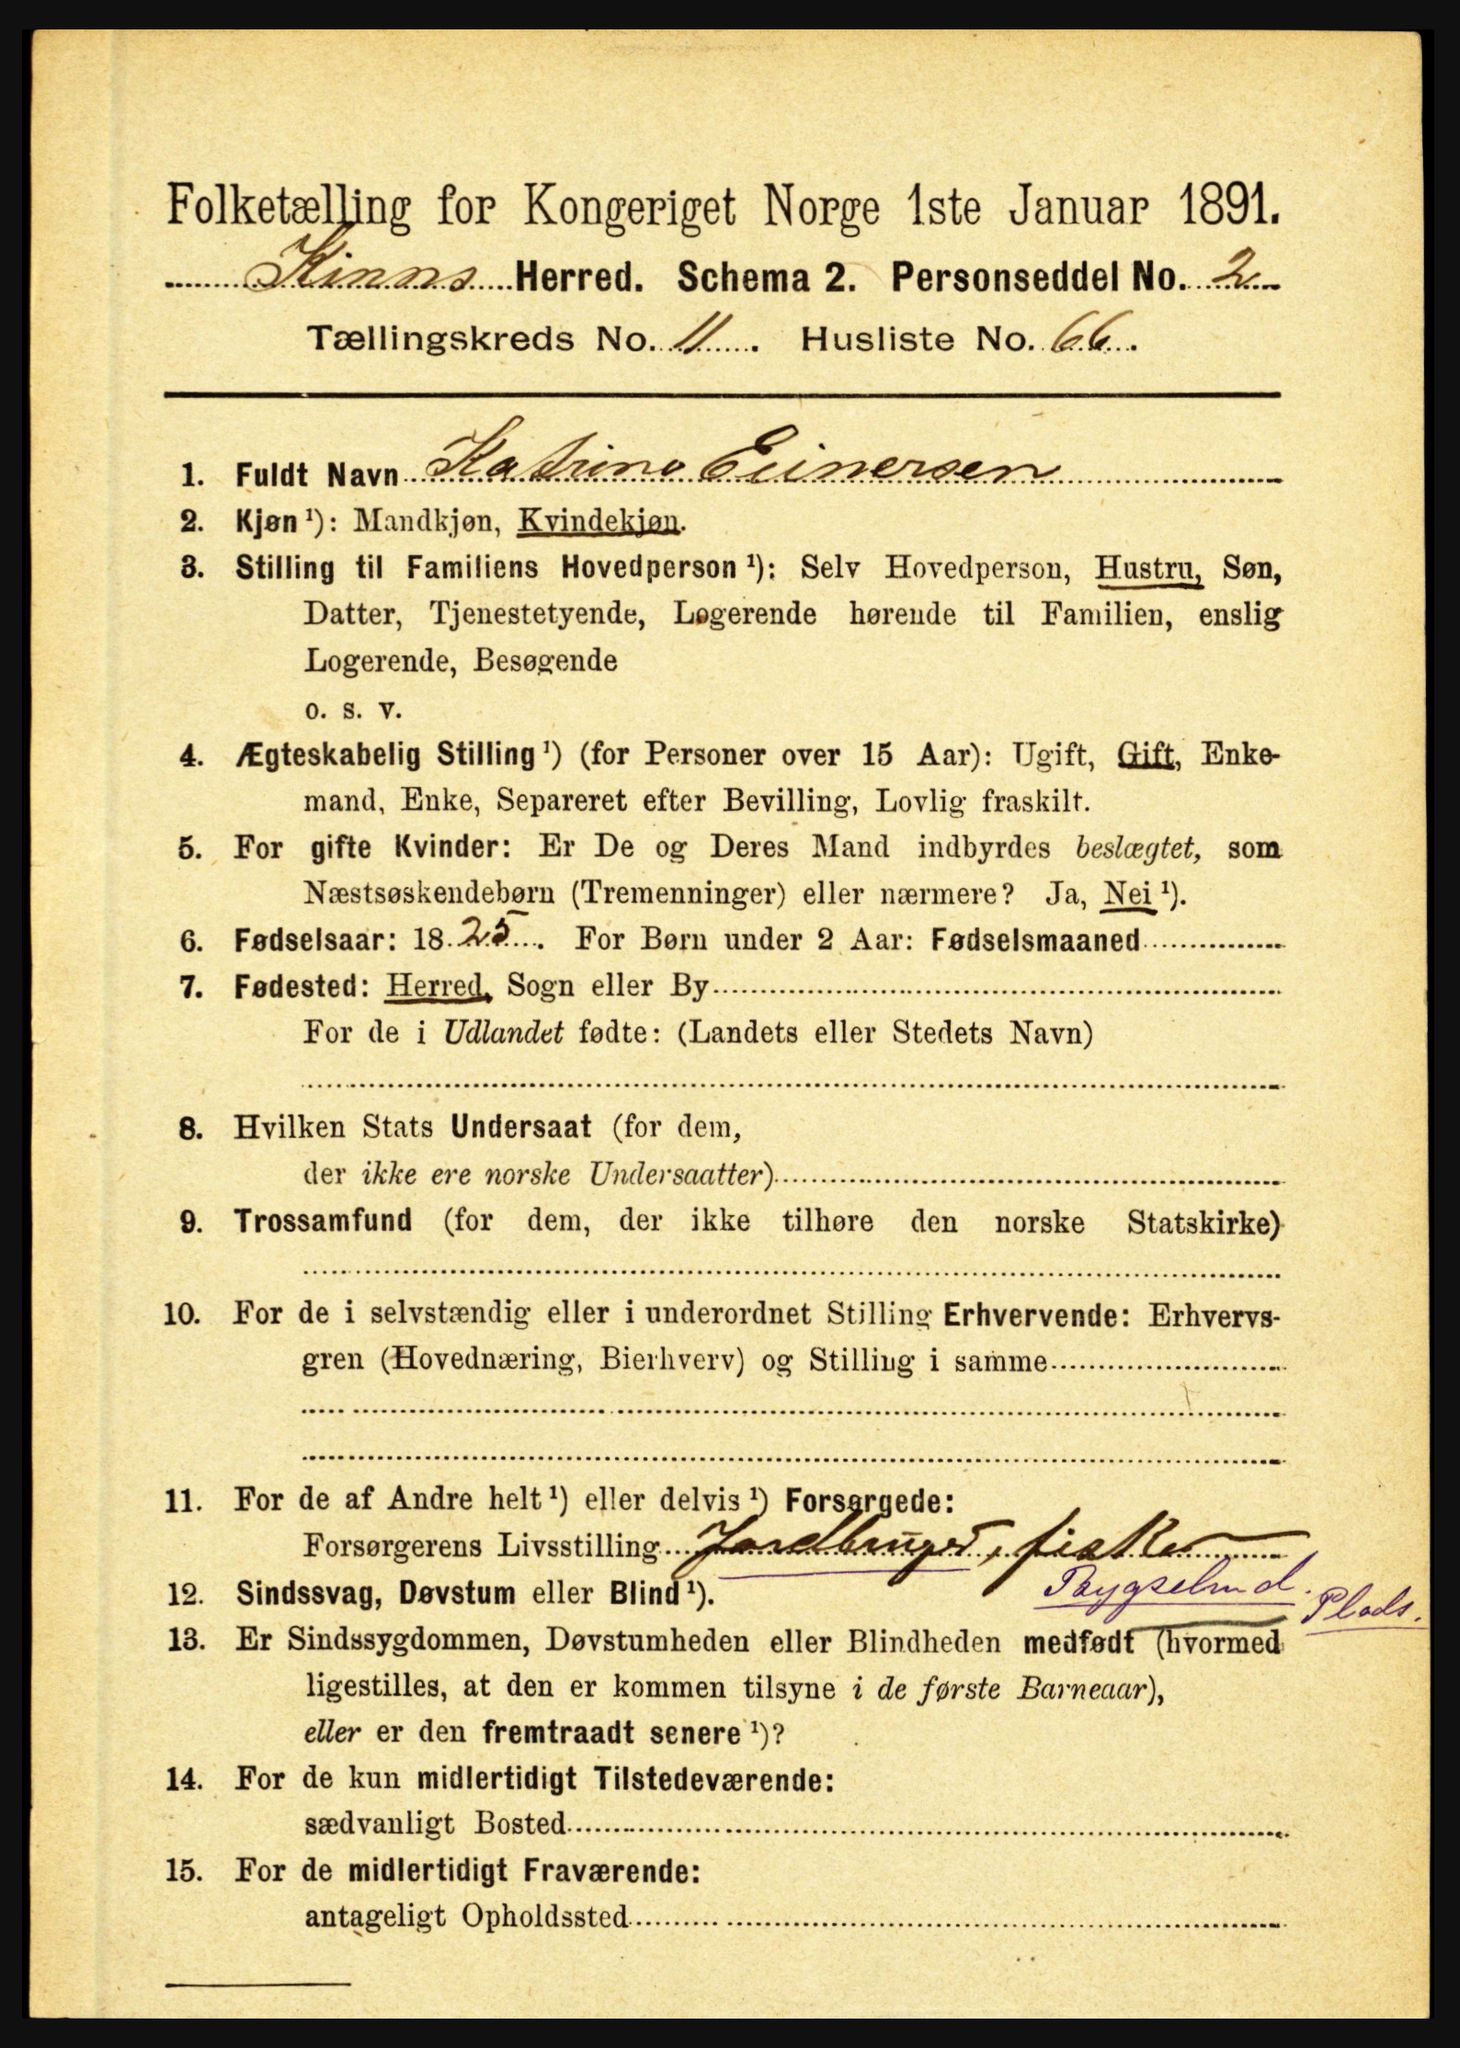 Folketælling for Kongeriget Norge 1ste Januar 1891.
Kinns Herred. Schema 2. Personseddel No. 2
Tællingskreds No. 11. Husliste No. 66.
1. Fuldt Navn Katrina Einersen
2. Kjøn¹): Mandkjøn, Kvindekjøn.
3. Stilling til Familiens Hovedperson¹): Selv Hovedperson, Hustru, Søn,
Datter, Tjenestetyende, Logerende hørende til Familien, enslig
Logerende, Besøgende
o. s. v.
4. Ægteskabelig Stilling¹) (for Personer over 15 Aar): Ugift, Gift, Enke-
mand, Enke, Separeret efter Bevilling, Lovlig fraskilt.
5. For gifte Kvinder: Er De og Deres Mand indbyrdes beslægtet, som
Næstsøskendebørn (Tremenninger) eller nærmere? Ja, Nei¹).
6. Fødselsaar: 1825. For Børn under 2 Aar: Fødselsmaaned
7. Fødested: Herred, Sogn eller By
For de i Udlandet fødte: (Landets eller Stedets Navn)
8. Hvilken Stats Undersaat (for dem,
der ikke ere norske Undersaatter)
9. Trossamfund (for dem, der ikke tilhøre den norske Statskirke)
10. For de i selvstændig eller i underordnet Stilling Erhvervende: Erhvervs-
gren (Hovednæring, Bierhverv) og Stilling i samme
11. For de af Andre helt¹) eller delvis¹) Forsørgede:
Forsørgerens Livsstilling Jordbruger, fisker
Bygselmd. Plads.
12. Sindssvag, Døvstum eller Blind¹).
13. Er Sindssygdommen, Døvstumheden eller Blindheden medfødt (hvormed
ligestilles, at den er kommen tilsyne i de første Barneaar),
eller er den fremtraadt senere¹)?
14. For de kun midlertidigt Tilstedeværende:
sædvanligt Bosted
15. For de midlertidigt Fraværende:
antageligt Opholdssted